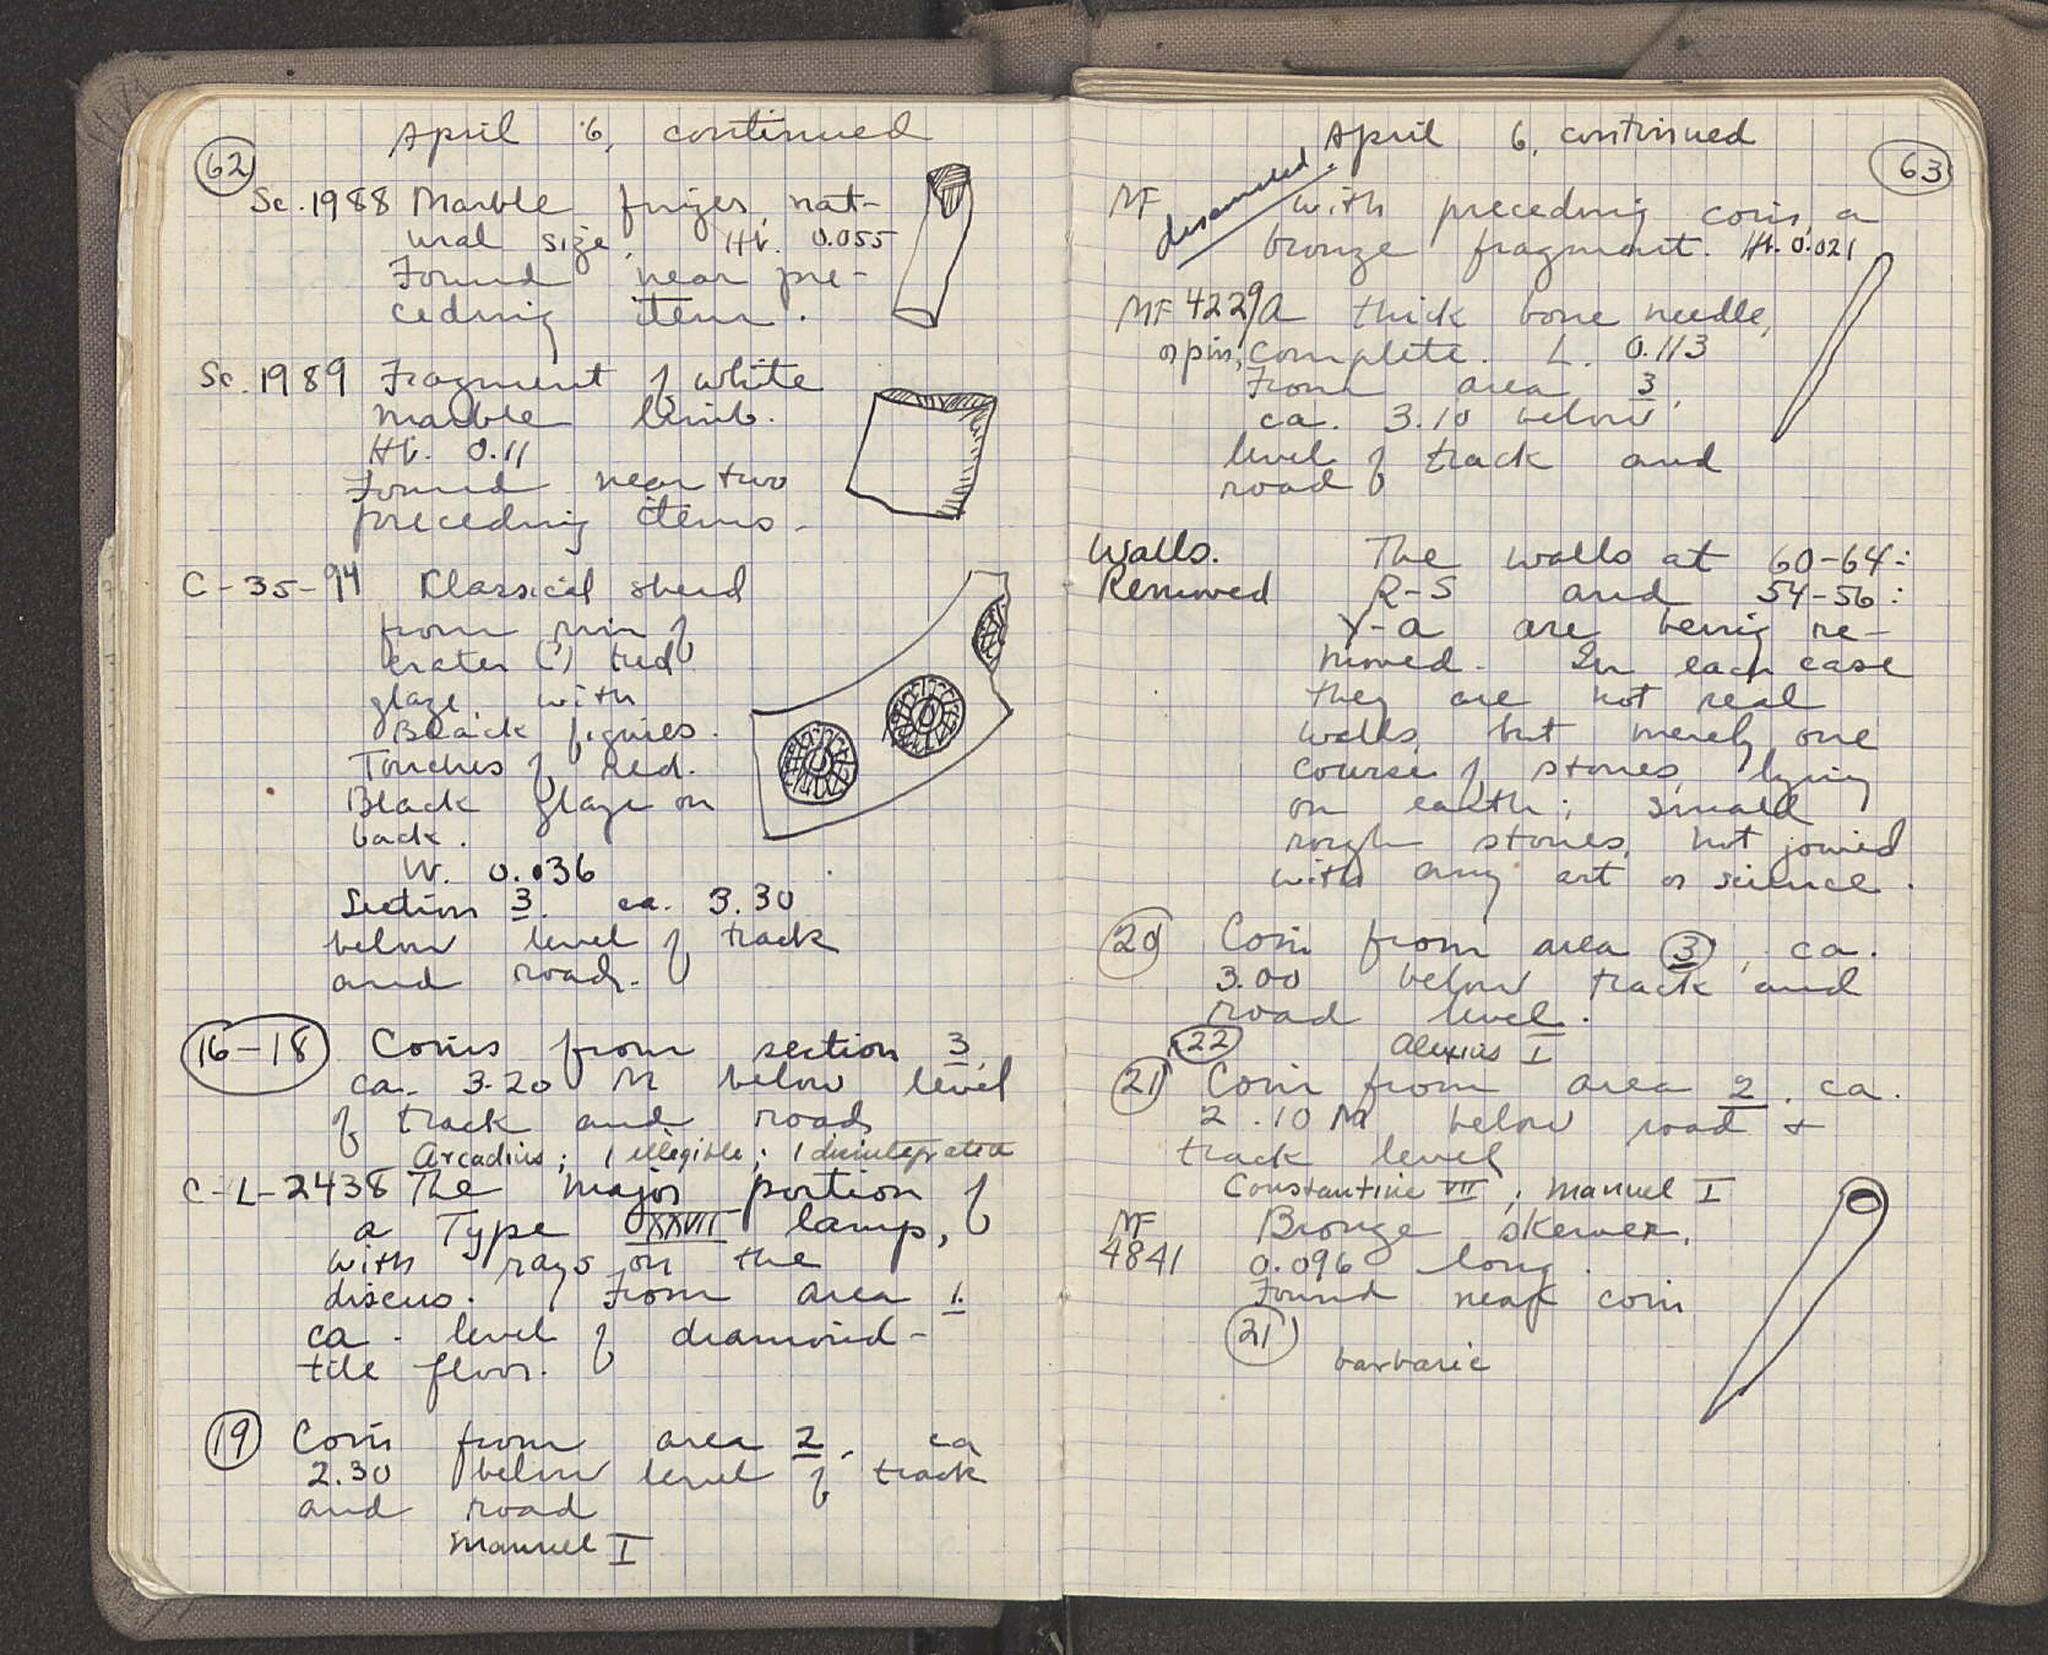 62
April 6, continued
Sc. 1988 Marble finger, nat-
ural size. Ht. 0.055
Found near pre-
ceding item.
Sc. 1989 Fragment of white
marble limb.
Ht. 0.11
Found near two
preceding items.
C-35-94 Classical sherd
from rim of
crater (?) red
glaze, with
Black figures.
Touches of red.
Black glaze on
back.
W. 0.036
Section 3. ca. 3.30
below level of track
and road.
16-18 Coins from section 3,
ca. 3.20 M below level
of track and road
Arcadius; 1 illegible; 1 disintegrated
C-L-2438 The major portion of
a Type XXVII lamp,
with rays on the
discus. From area 1.
ca. level of diamond-
tile floor.
19 Coin from area 2, ca
2.30 below level of track
and road
Manuel I
April 6, continued
63
MF discarded. with preceding coin, a
bronze fragment. Ht. 0.021
MF 4229 A thick bone needle,
or pin, complete. L. 0.113
From area 3,
ca. 3.10 below
level of track and
road
Walls. The walls at 60-64:
Removed R-S and 54-56:
Y-a are being re-
moved. In each case
they are not real
walls, but merely one
course of stones, lying
on earth; small
rough stones, not joined
with any art or science.
20 Coin from area 3, ca.
3.00 below track and
road level.
22 Alexius I
21 Coin from area 2. ca.
2.10 M below road +
track level
Constantine VII; Manuel I
MF Bronze skewer,
4841 0.096 long.
Found near coin
21
barbaric